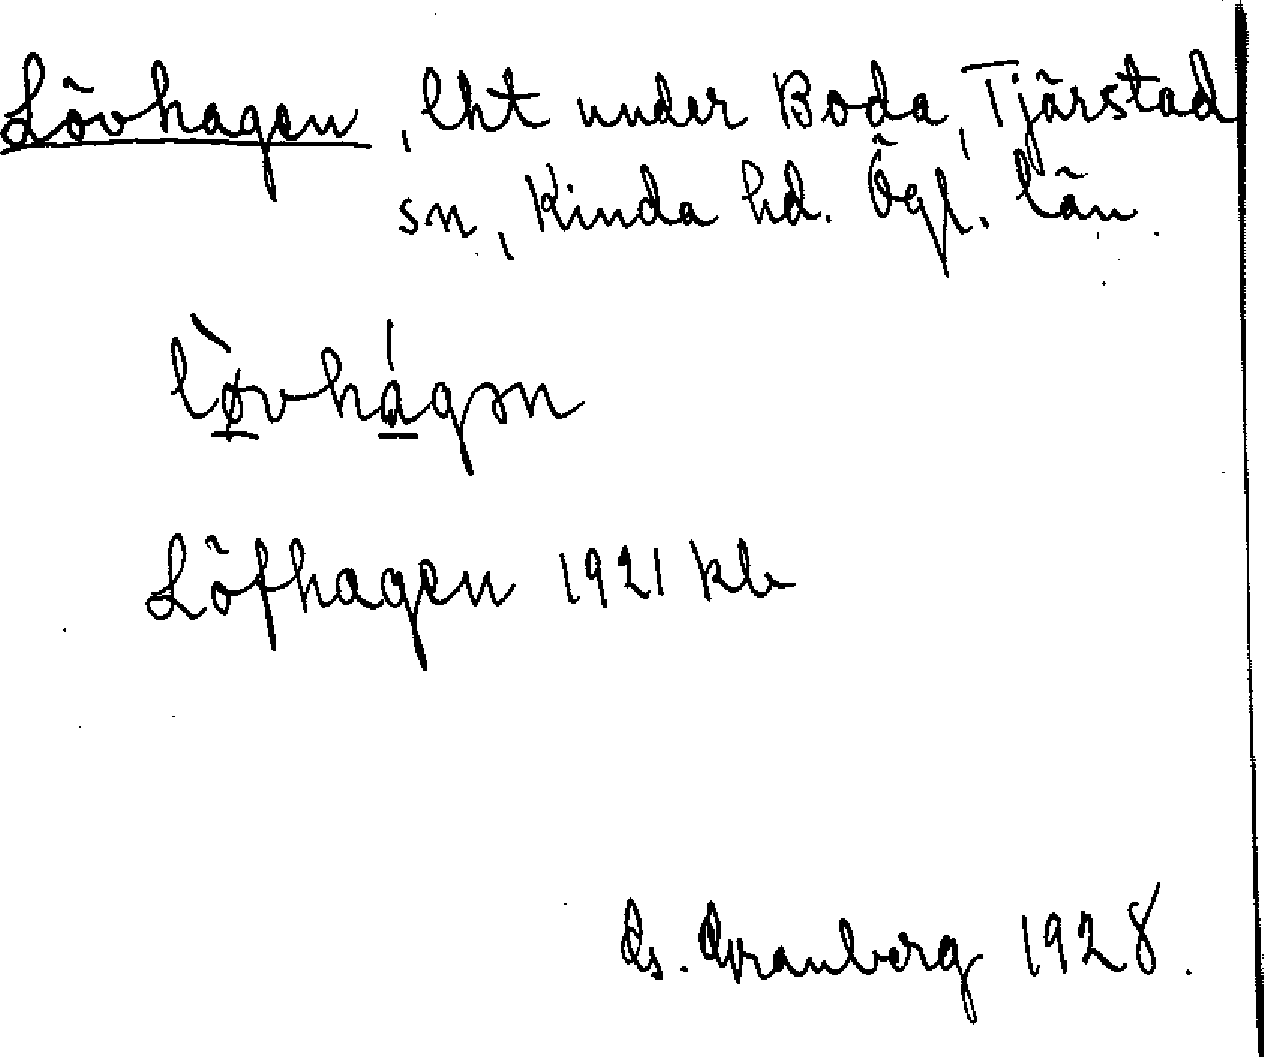 Lövhagen, lht under Boda, Tjärstad
sn, Kinda hd. Ögl. län.
lø̀vhágən
Löfhagen 1921 kb
G. Granberg 1928.